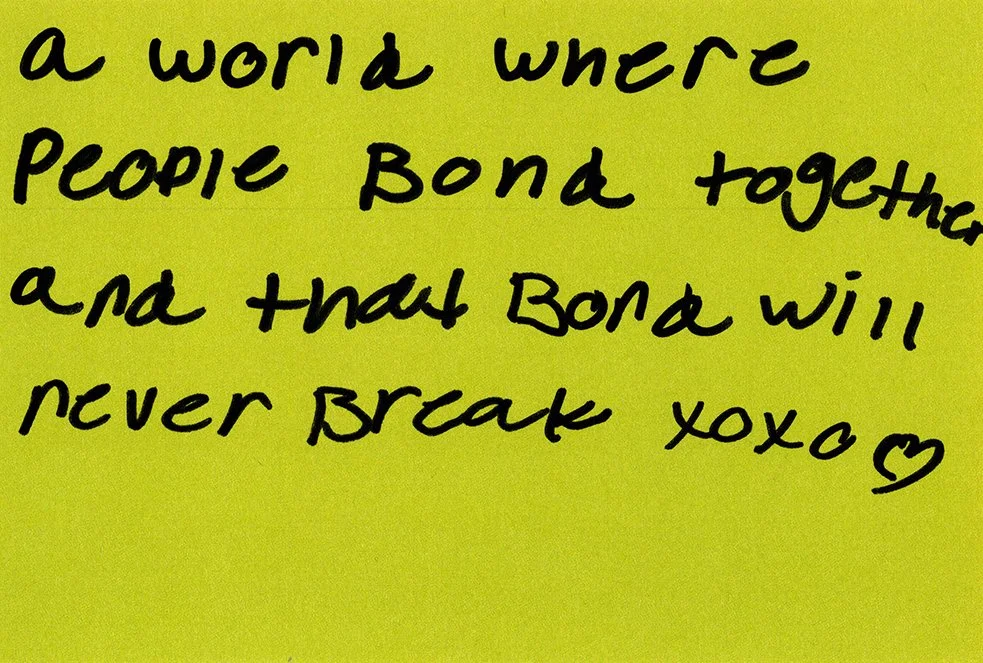 a world where
People Bond together
and that Bond will
never Break xoxo♡